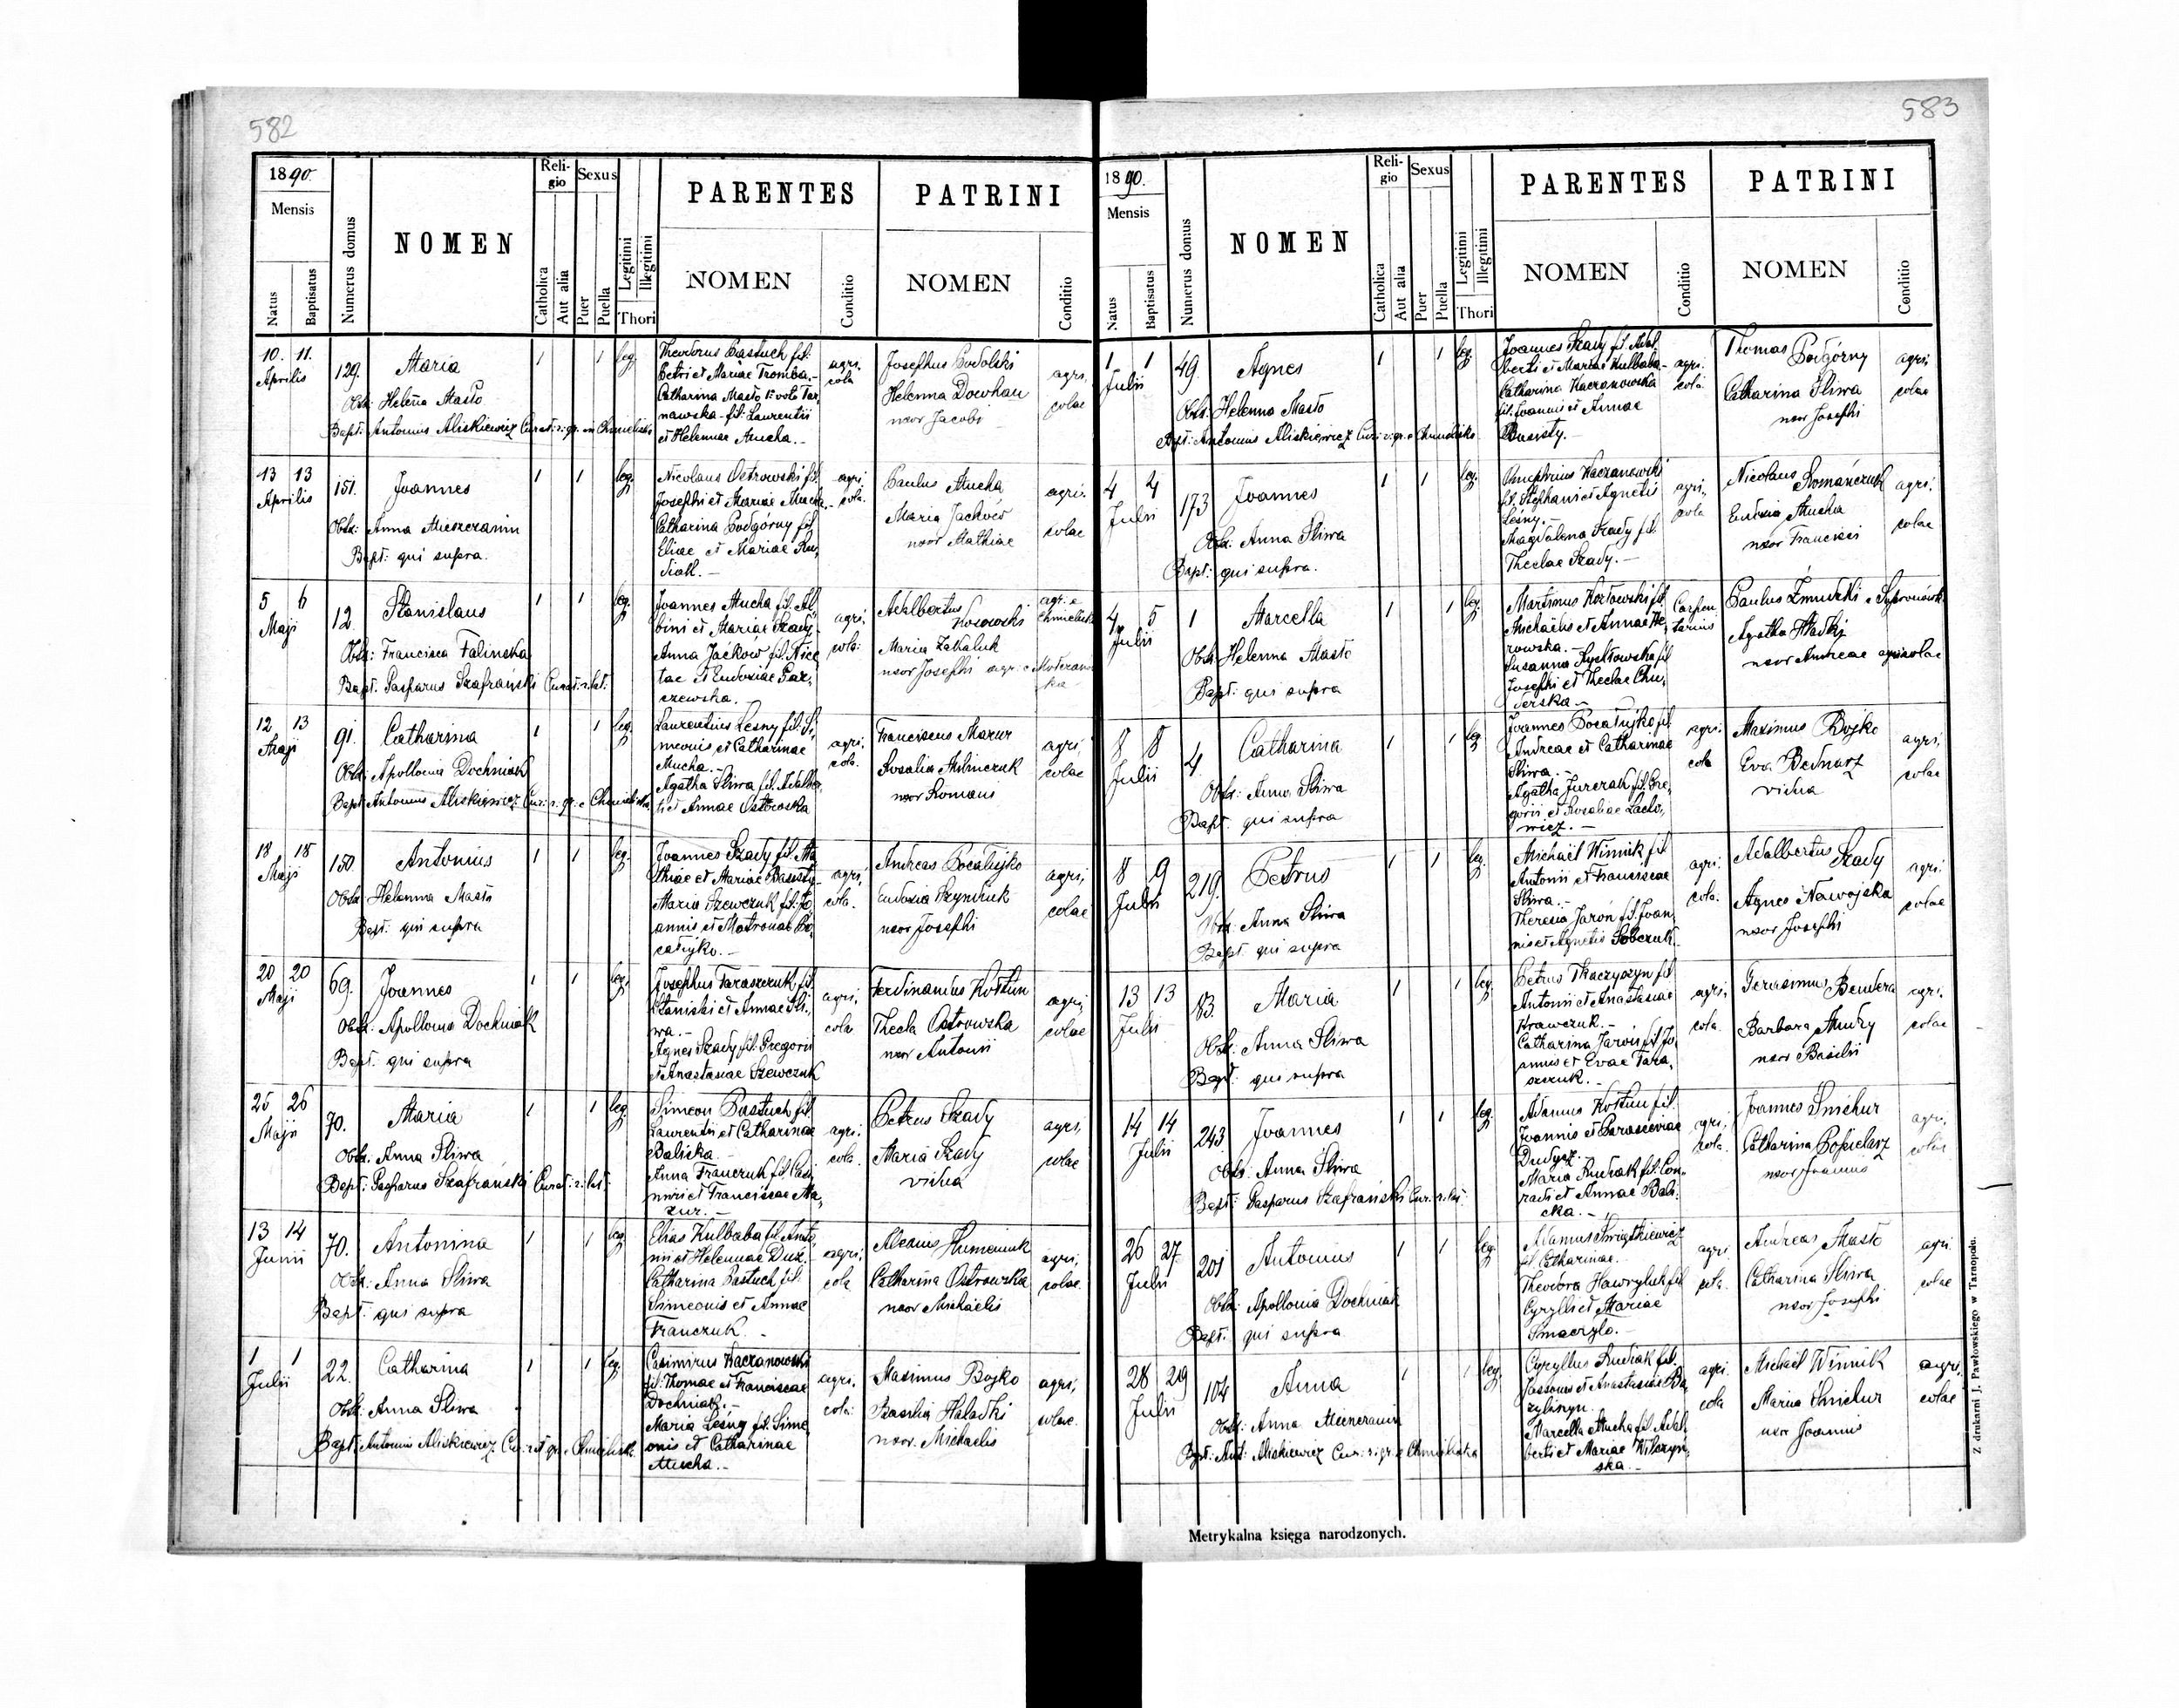 582
1890.
Mensis
Natus
Baptisatus
Numerus domus
NOMEN
Religio
Catholica
Aut alia
Sexus
Puer
Puella
Legitimi
Illegitimi
Thori
PARENTES
NOMEN
Conditio
PATRINI
NOMEN
Conditio
10. 11. Aprilis
129.
Maria
Obst: Helena Masło
Bapt: Antonius Aliskiewicz Curat: r: gr. e Chmieliska
1 1 leg.
Theodorus Pastuch fil:
Petri et Mariae Tromba.-
Catharina Masło 1º voto Tar,
nawska fil: Laurentii
et Helenae Mucha.-
agri,
cola
Josephus Podolski
Helenna Dowhan
uxor Jacobi
agri,
colae
13 13 Aprilis
151.
Joannes
Obst: Anna Mieczeranin
Bapt: qui supra.
1 1 leg.
Nicolaus Ostrowski fil.
Josephi et Mariae Mucha.-
Catharina Podgórny fil
Eliae et Mariae Ru,
diak.-
agri,
cola.
Paulus Mucha
Maria Jackow
uxor Mathiae
agri.
colae
5 6 Maji
12.
Stanislaus
Obst: Francisca Falinska
Bapt: Gasparus Szafrański Curat: r. lat:
1 1 leg.
Joannes Mucha fil. Al,
bini et Mariae Szady.
Anna Jackow fil. Nice
tae et Eudoxiae Gar,
czewska.
agri,
cola:
Adalbertus
Kosowski
Maria Zahaluk
uxor Josephi
agr: e
Chmieliska
12 13 Maji
91.
Catharina
Obst: Apollonia Dochniak
Bapt: Antonius Aliskiewicz Cur: r. gr. e Chmieliska
1 1 leg.
Laurentius Leśny fil: Si,
meonis et Catharinae
Mucha.-
Agatha Sliwa fil. Adalber,
ti et Annae Ostrowska
agri,
cola.
Franciscus Mazur
Rosalia Milinczuk
uxor Romani
agri,
colae
18 18 Maji
150.
Antonius
Obst: Helenna Masło
Bapt: qui supra
1 1 leg.
Joannes Szady fil. Ma
thiae et Mariae Basisty.
Maria Szewczuk fil: Jo
annis et Matronae Bo,
catujko.-
agri,
cola.
Andreas Bocatujko
Eudoxia
uxor Josephi
agri,
colae
20 20 Maji
69.
Joannes
Obst: Apollonia Dochniak
Bapt: qui supra
1 1 leg.
Josephus Taraszczuk fil.
Stanislai et Annae Sli,
wa.-
Agnes Szady fil: Gregorii
et Anastasiae Szewczuk
agri,
cola
Ferdinandus Kostun
Thecla Ostrowska
uxor Antonii
agri,
colae
25 26 Maji
70.
Maria
Obst. Anna Sliwa
Bapt: Gasparus Szafrański Curat: r: lat:
1 1 leg.
Simeon Pastuch fil.
Laurentii et Catharinae
Balicka.-
Anna Franczuk fil. Casi,
miri et Franciscae Ma,
zur.-
agri,
cola.
Petrus Szady
Maria Szady
vidua
agri,
colae
13 14 Junii
70.
Antonina
Obst: Anna Sliwa
Bapt: qui supra
1 1 leg.
Elias Kulbaba fil. Anto,
nii et Helennae Duź.
Catharina Pastuch fil.
Simeonis et Annae
Franczuk.-
agri,
cola
Alexius Humeniuk
Catharina Ostrowska
uxor Michaelis
agri,
colae
1 1 Julii
22.
Catharina
Obst: Anna Sliwa
Bapt: Antonius Aliskiewicz Cur: rit. gr. e Chmieliska
1 1 leg.
Casimirus Kaczanowski
fil: Thomae et Franciscae
Dochniak.-
Maria Leśny fil: Sime,
onis et Catharinae
Mucha.-
agri,
cola:
Maximus Bojko
Basilia Haladki
uxor Michaelis
agri,
colae.
583
1890.
Mensis
Natus
Baptisatus
Numerus domus
NOMEN
Religio
Catholica
Aut alia
Sexus
Puer
Puella
Legitimi
Illegitimi
Thori
PARENTES
NOMEN
Conditio
PATRINI
NOMEN
Conditio
1 1 Julii
49.
Agnes
Obst: Helenna Masło
Bapt: Antonius Aliskiewicz Cur: r. gr. e Chmieliska
1 1 leg.
Joannes Szady fil. Adal,
berti et Mariae Kulbaba.-
Catharina Kaczanowska
fil. Joannis et Annae
Basisty.-
agri,
cola.
Thomas Podgórny
Catharina Sliwa
uxor Josephi
agri,
colae
4 4 Julii
173
Joannes
Obst: Anna Sliwa
Bapt: qui supra.
1 1 leg.
Onuphrius Kaczanowski
fil. Stephani et Agnetis
Leśny.-
Magdalena Szady fil.
Theclae Szady.-
agri,
cola
Nicolaus Romańczuk
Eudoxia Mucha
uxor Francisci
agri,
colae
4 5 Julii
1
Marcella
Obst: Helenna Masło
Bapt: qui supra
1 1 leg.
Martinus Kozłowski fil.
Michaelis et Annae
rowska.-
Susanna Rychłowska fil
Josephi et Theclae Chu,
derska-
Carpen,
tarius
Paulus Żmudzki
Agatha
uxor Andreae agricolae
8 8 Julii
4.
Catharina
Obst: Anna Sliwa
Bapt. qui supra
1 1 leg.
Joannes Bocatujko fil.
Andreae et Catharinae
Sliwa.-
Agatha Jurczak fil. Gre,
gorii et Rosaliae Lacho,
wicz.-
agri,
cola
Maximus Bojko
Eva Bednarz
vidua
agri,
colae
8 9 Julii
219.
Petrus
Obst: Anna Sliwa
Bapt. qui supra
1 1 leg.
Michaël Winnik fil
Antonii et Franciscae
Sliwa.-
Theresia Jaroń fil. Joan,
nis et Agnetis Sobczuk.-
agri,
cola.
Adalbertus Szady
Agnes Nawojska
uxor Josephi
agri,
colae
13 13 Julii
83.
Maria
Obst: Anna Sliwa
Bapt: qui supra
1 1 leg.
Petrus Tkaczyszyn fil
Antonii et Anastasiae
Krawczuk.-
Catharina Jaroń fil. Jo,
annis et Evae Tara,
szczuk.-
agri,
cola
Gerasimus Bendera
Barbara Mudry
uxor Basilii
agri,
colae
14 14 Julii
243.
Joannes
Obst: Anna Sliwa
Bapt: Gasparus Szafrański Cur. r. lat:
1 1 leg.
Adamus Kostun fil.
Joannis et Parasceviae
Dudycz.-
Maria Rudiak fil. Con,
radi et Annae Bali,
cka.-
agri,
cola.
Joannes Smichur
Catharina
uxor Joannis
agri,
colae
26 27 Julii
201
Antonius
Obst: Apollonia Dochniak
Bapt: qui supra
1 1 leg.
Adamus Swiątkiewicz
fil. Catharinae.
Theodora Hawryluk fil
Cyrylli et Mariae
Smaczylo.-
agri,
cola.
Andreas Masło
Catharina Sliwa
uxor Josephi
agri,
colae
28 29 Julii
104
Anna
Obst: Anna Mieczeranin
Bapt: Ant: Aliskiewicz Cur: r. gr. e Chmieliska
1 1 leg.
Cyryllus Rudiak fil.
Jassonis et Anastasiae Ba,
zylinyn.
Marcella Mucha fil. Adal,
berti et Mariae Wilczyn,
ska.-
agri,
cola
Michaël Winnik
Maria Smichur
uxor Joannis
agri,
colae
Metrykalna księga narodzonych.
Z drukarni J. Pawłowskiego w Tarnopolu.